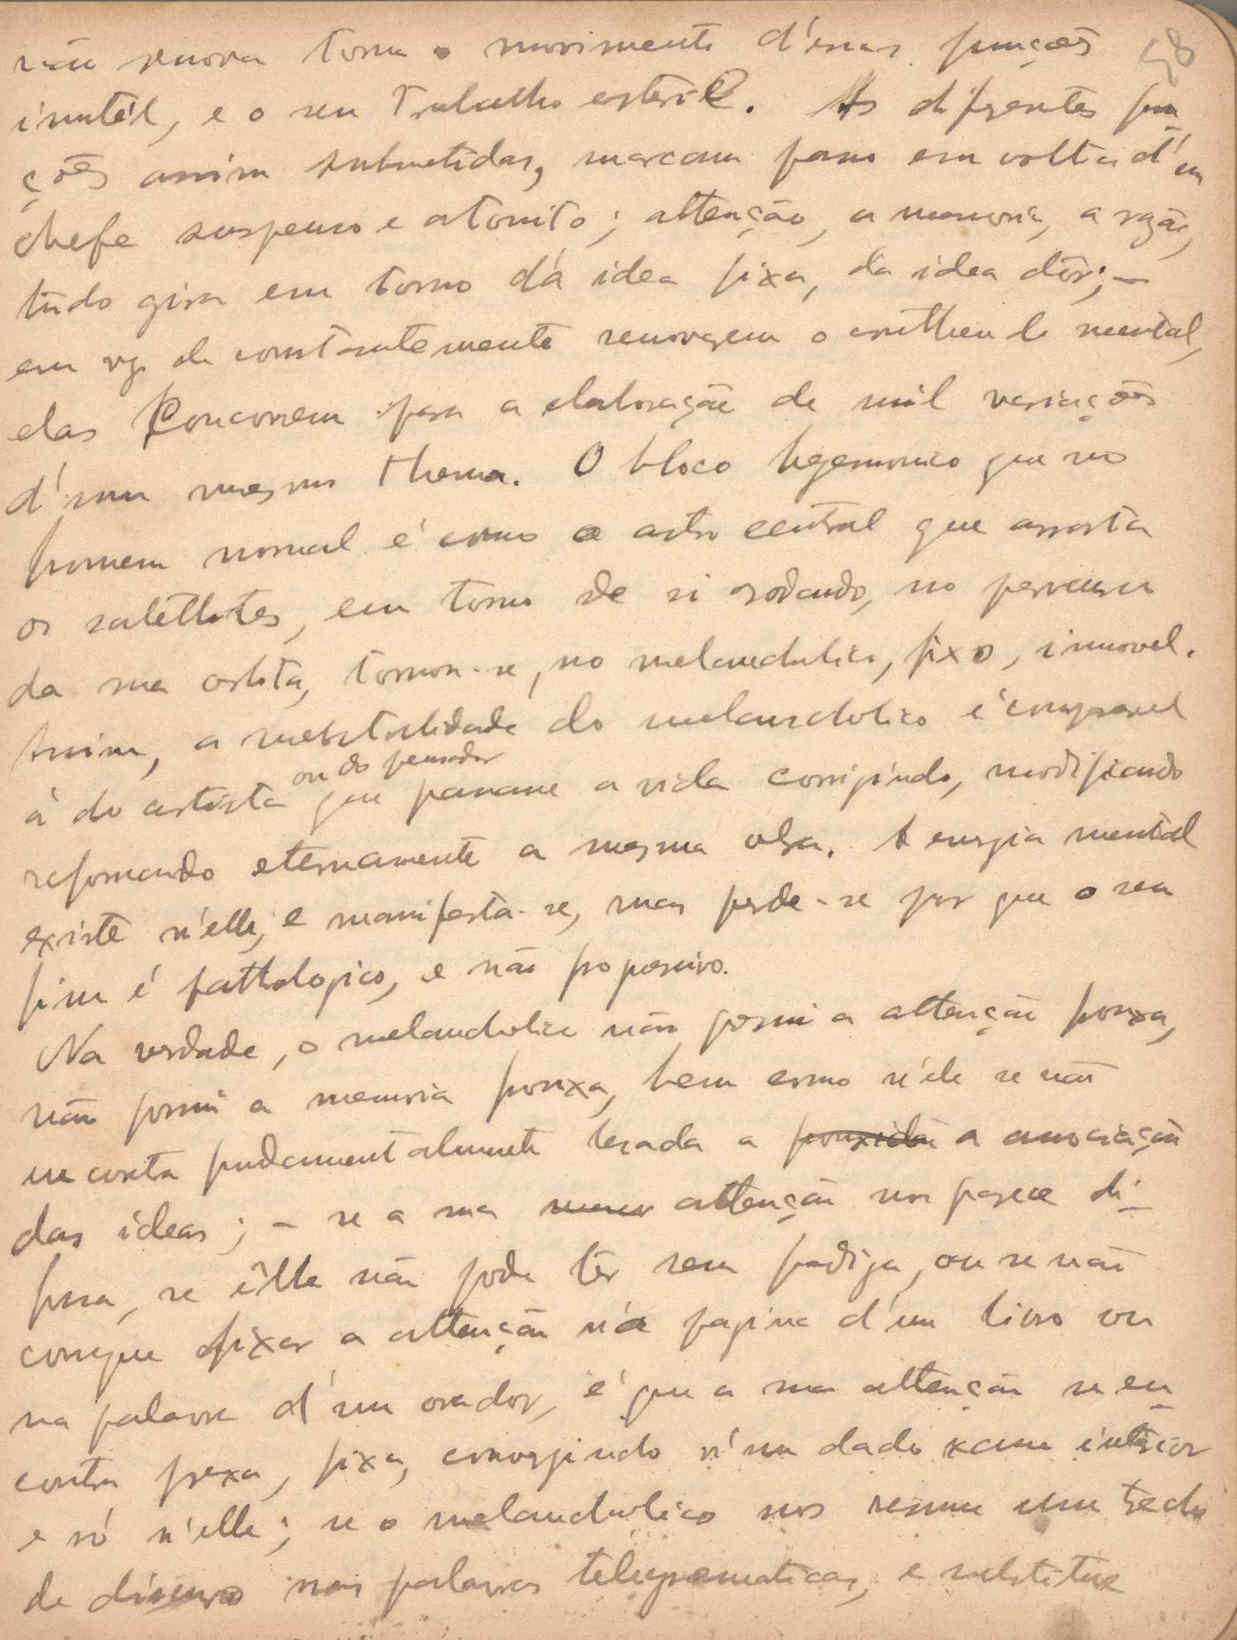 58
não renova torna o movimento d'essas funções
inutil, e o seu trabalho esteril. As differentes fun
ções assim submetidas, marcam passo em volta d'um
chefe suspenso e atonito; attenção, a memoria, a razão,
tudo gira em torno da idea fixa, da idea dôr; —
em vez de constantemente renovarem o contheudo mental,
elas concorrem para a elaboração de mil variações
d'um mesmo thema. O bloco hegemonico que no
homem normal é como o astro central que arrasta
os satellites, em torno de si rodando, no percurso
da sua orbita, tornou-se, no melancholico, fixo, immovel.
Assim, a mentalidade do melancholico é comparavel
á do artista ou do pensador que passasse a vida corrigindo, modificando
reformando eternamente a mesma obra. A energia mental
existe n'elle, e manifesta-se, mas perde-se por que o seu
fim é pathologico, e não progressivo.
Na verdade, o melancholico não possui a attenção frouxa,
não possui a memoria frouxa, bem como n'ele se não
encontra fundamentalmente lesada a frouxidão a associação
das ideas; — se a sua attenção nos parece di-
fusa, se êlle não pode ler sem fadiga, ou se não
consegue fixar a attenção n'a pagina d'um livro ou
na palavra d'um orador, é que a sua attenção se en
contra presa, fixa, convergindo n'um dado exame interior
e só n'elle; se o melancholico nos resume um trecho
de discurso nas palavras telegramaticas, e substitue